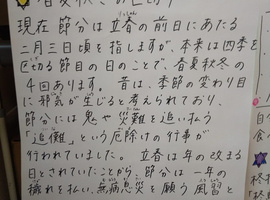 現在 節分は立春の前日にあたる
二月三日頃を指しますが、本来は四季を
区切る節目の日のことで、春夏秋冬の
4回あります。昔は、季節の変わり目
に邪気が生じると考えられており、
節分には鬼や災難を追い払う
「追儺」という厄除けの行事が
行われていました。立春は年の改まる
日とされていたことから、節分は一年の
穢れを払い、無病息災を願う風習と